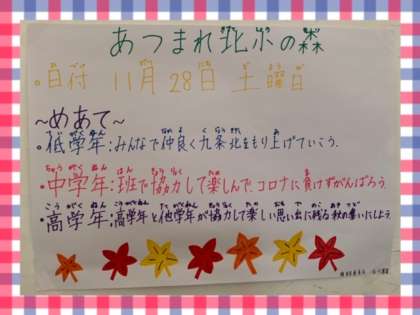 あつまれ北小の森
。日付 11月28日 土曜日
～めあて～
・低学年:みんなで仲良く九条北をもり上げていこう。
・中学年:班で協力して楽しんで、コロナに負けずがんばろう。
・高学年:高学年と他学年が協力して楽しい思い出に残る秋の集いにしよう。